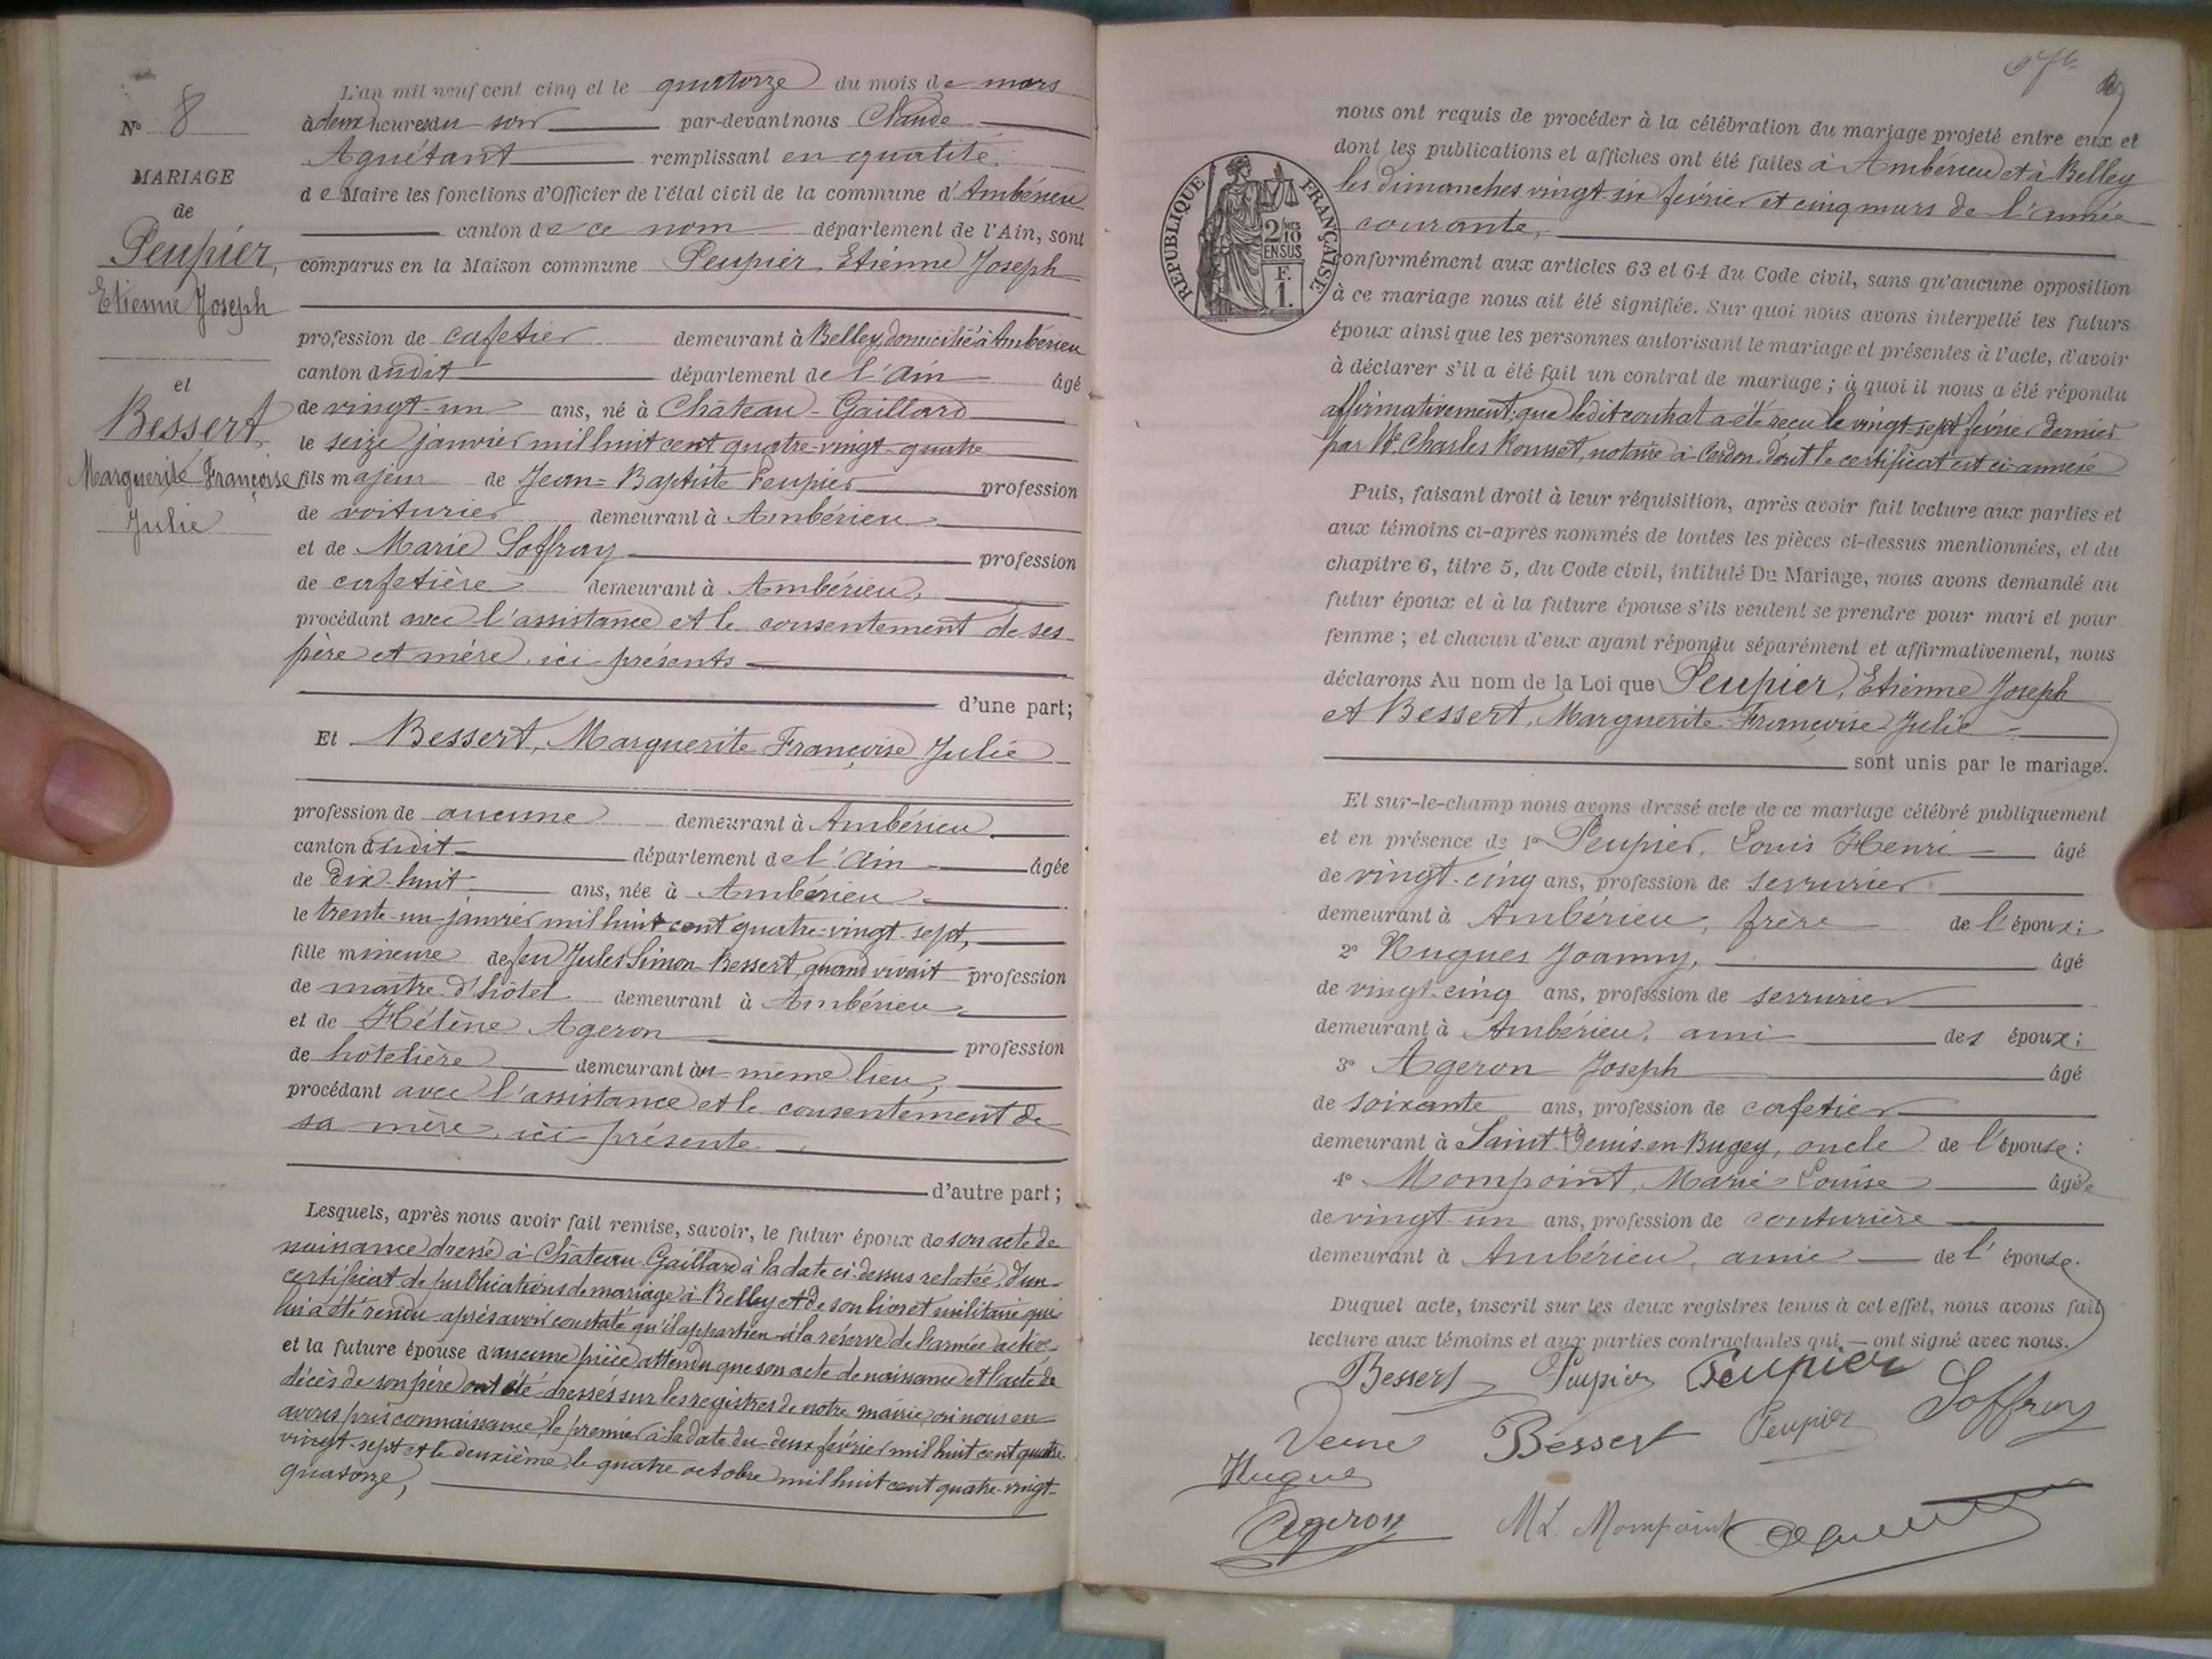 N° 8
MARIAGE
de
Peupier,
Etienne Joseph
et
Bessert,
Marguerite Françoise
Julie
L'an mil neuf cent cinq et le quatorze du mois de mars
à deux heures du soir par-devant nous Claude
Aguétant remplissant en qualité
de Maire les fonctions d'Officier de l'état civil de la commune d'Ambérieu
canton de ce nom département de l'Ain, sont
comparus en la Maison commune Peupier, Etienne Joseph
profession de cafetier demeurant à Belley, domicilié à Ambérieu
canton dudit département de l'Ain âgé
de vingt-un ans, né à Château-Gaillard
le seize janvier mil huit cent quatre-vingt-quatre
fils majeur de Jean-Baptiste Peupier profession
de voiturier demeurant à Ambérieu
et de Marie Soffray profession
de cafetière demeurant à Ambérieu,
procédant avec l'assistance et le consentement de ses
père et mère, ici présents
d'une part;
Et Bessert, Marguerite Françoise Julie
profession de aucune demeurant à Ambérieu
canton dudit département de l'Ain âgée
de dix-huit ans, née à Ambérieu
le trente-un janvier mil huit cent quatre-vingt-sept,
fille mineure de feu Jules Simon Bessert, quand vivait profession
de maître d'hôtel demeurant à Ambérieu
et de Hélène Ageron profession
de hôtelière demeurant au même lieu,
procédant avec l'assistance et le consentement de
sa mère, ici présente
d'autre part;
Lesquels, après nous avoir fait remise, savoir, le futur époux de son acte de
naissance dressé à Château-Gaillard à la date ci-dessus relatée, d'un
certificat de publications de mariage à Belley et de son livret militaire qui
lui a été rendu après avoir constaté qu'il appartien à la réserve de l'armée active
et la future épouse d'aucune pièce, attendu que son acte de naissance et l'acte de
décès de son père ont été dressés sur les registres de notre mairie, où nous en
avons pris connaissance, le premier à la date du deux février mil huit cent quatre
vingt-sept et le deuxième, le quatre octobre mil huit cent quatre-vingt-
quatorze,
nous ont requis de procéder à la célébration du mariage projeté entre eux et
dont les publications et affiches ont été faites à Ambérieu et à Belley
les dimanches vingt-six février et cinq mars de l'année
courante,
RÉPUBLIQUE FRANÇAISE
2/10 EN SUS
F.
1.
conformément aux articles 63 et 64 du Code civil, sans qu'aucune opposition
à ce mariage nous ait été signifiée. Sur quoi nous avons interpellé les futurs
époux ainsi que les personnes autorisant le mariage et présentes à l'acte, d'avoir
à déclarer s'il a été fait un contrat de mariage; à quoi il nous a été répondu
affirmativement, que ledit contrat a été reçu le vingt-sept février dernier
par Me Charles notaire à Cerdon dont le certificat est ci-annexé
Puis, faisant droit à leur réquisition, après avoir fait lecture aux parties et
aux témoins ci-après nommés de toutes les pièces ci-dessus mentionnées, et du
chapitre 6, titre 5, du Code civil, intitulé Du Mariage, nous avons demandé au
futur époux et à la future épouse s'ils veulent se prendre pour mari et pour
femme; et chacun d'eux ayant répondu séparément et affirmativement, nous
déclarons Au nom de la Loi que Peupier, Etienne Joseph
et Bessert, Marguerite Françoise Julie
sont unis par le mariage.
Et sur-le-champ nous avons dressé acte de ce mariage célébré publiquement
et en présence de 1° Peupier, Louis Henri âgé
de vingt-cinq ans, profession de serrurier
demeurant à Ambérieu, frère de l'époux;
2° Hugues Joanny, âgé
de vingt-cinq ans, profession de serrurier
demeurant à Ambérieu, ami des époux;
3° Ageron Joseph âgé
de soixante ans, profession de cafetier
demeurant à Saint-Denis-en-Bugey, oncle de l'épouse:
4° Mompoint, Marie Louise âgée
de vingt-un ans, profession de couturière
demeurant à Ambérieu, amie de l'épouse.
Duquel acte, inscrit sur les deux registres tenus à cet effet, nous avons fait
lecture aux témoins et aux parties contractantes qui ont signé avec nous.
Bessert Peupier Peupier
Bessert Peupier Soffray
Hugues
Ageron ML. Mompoint